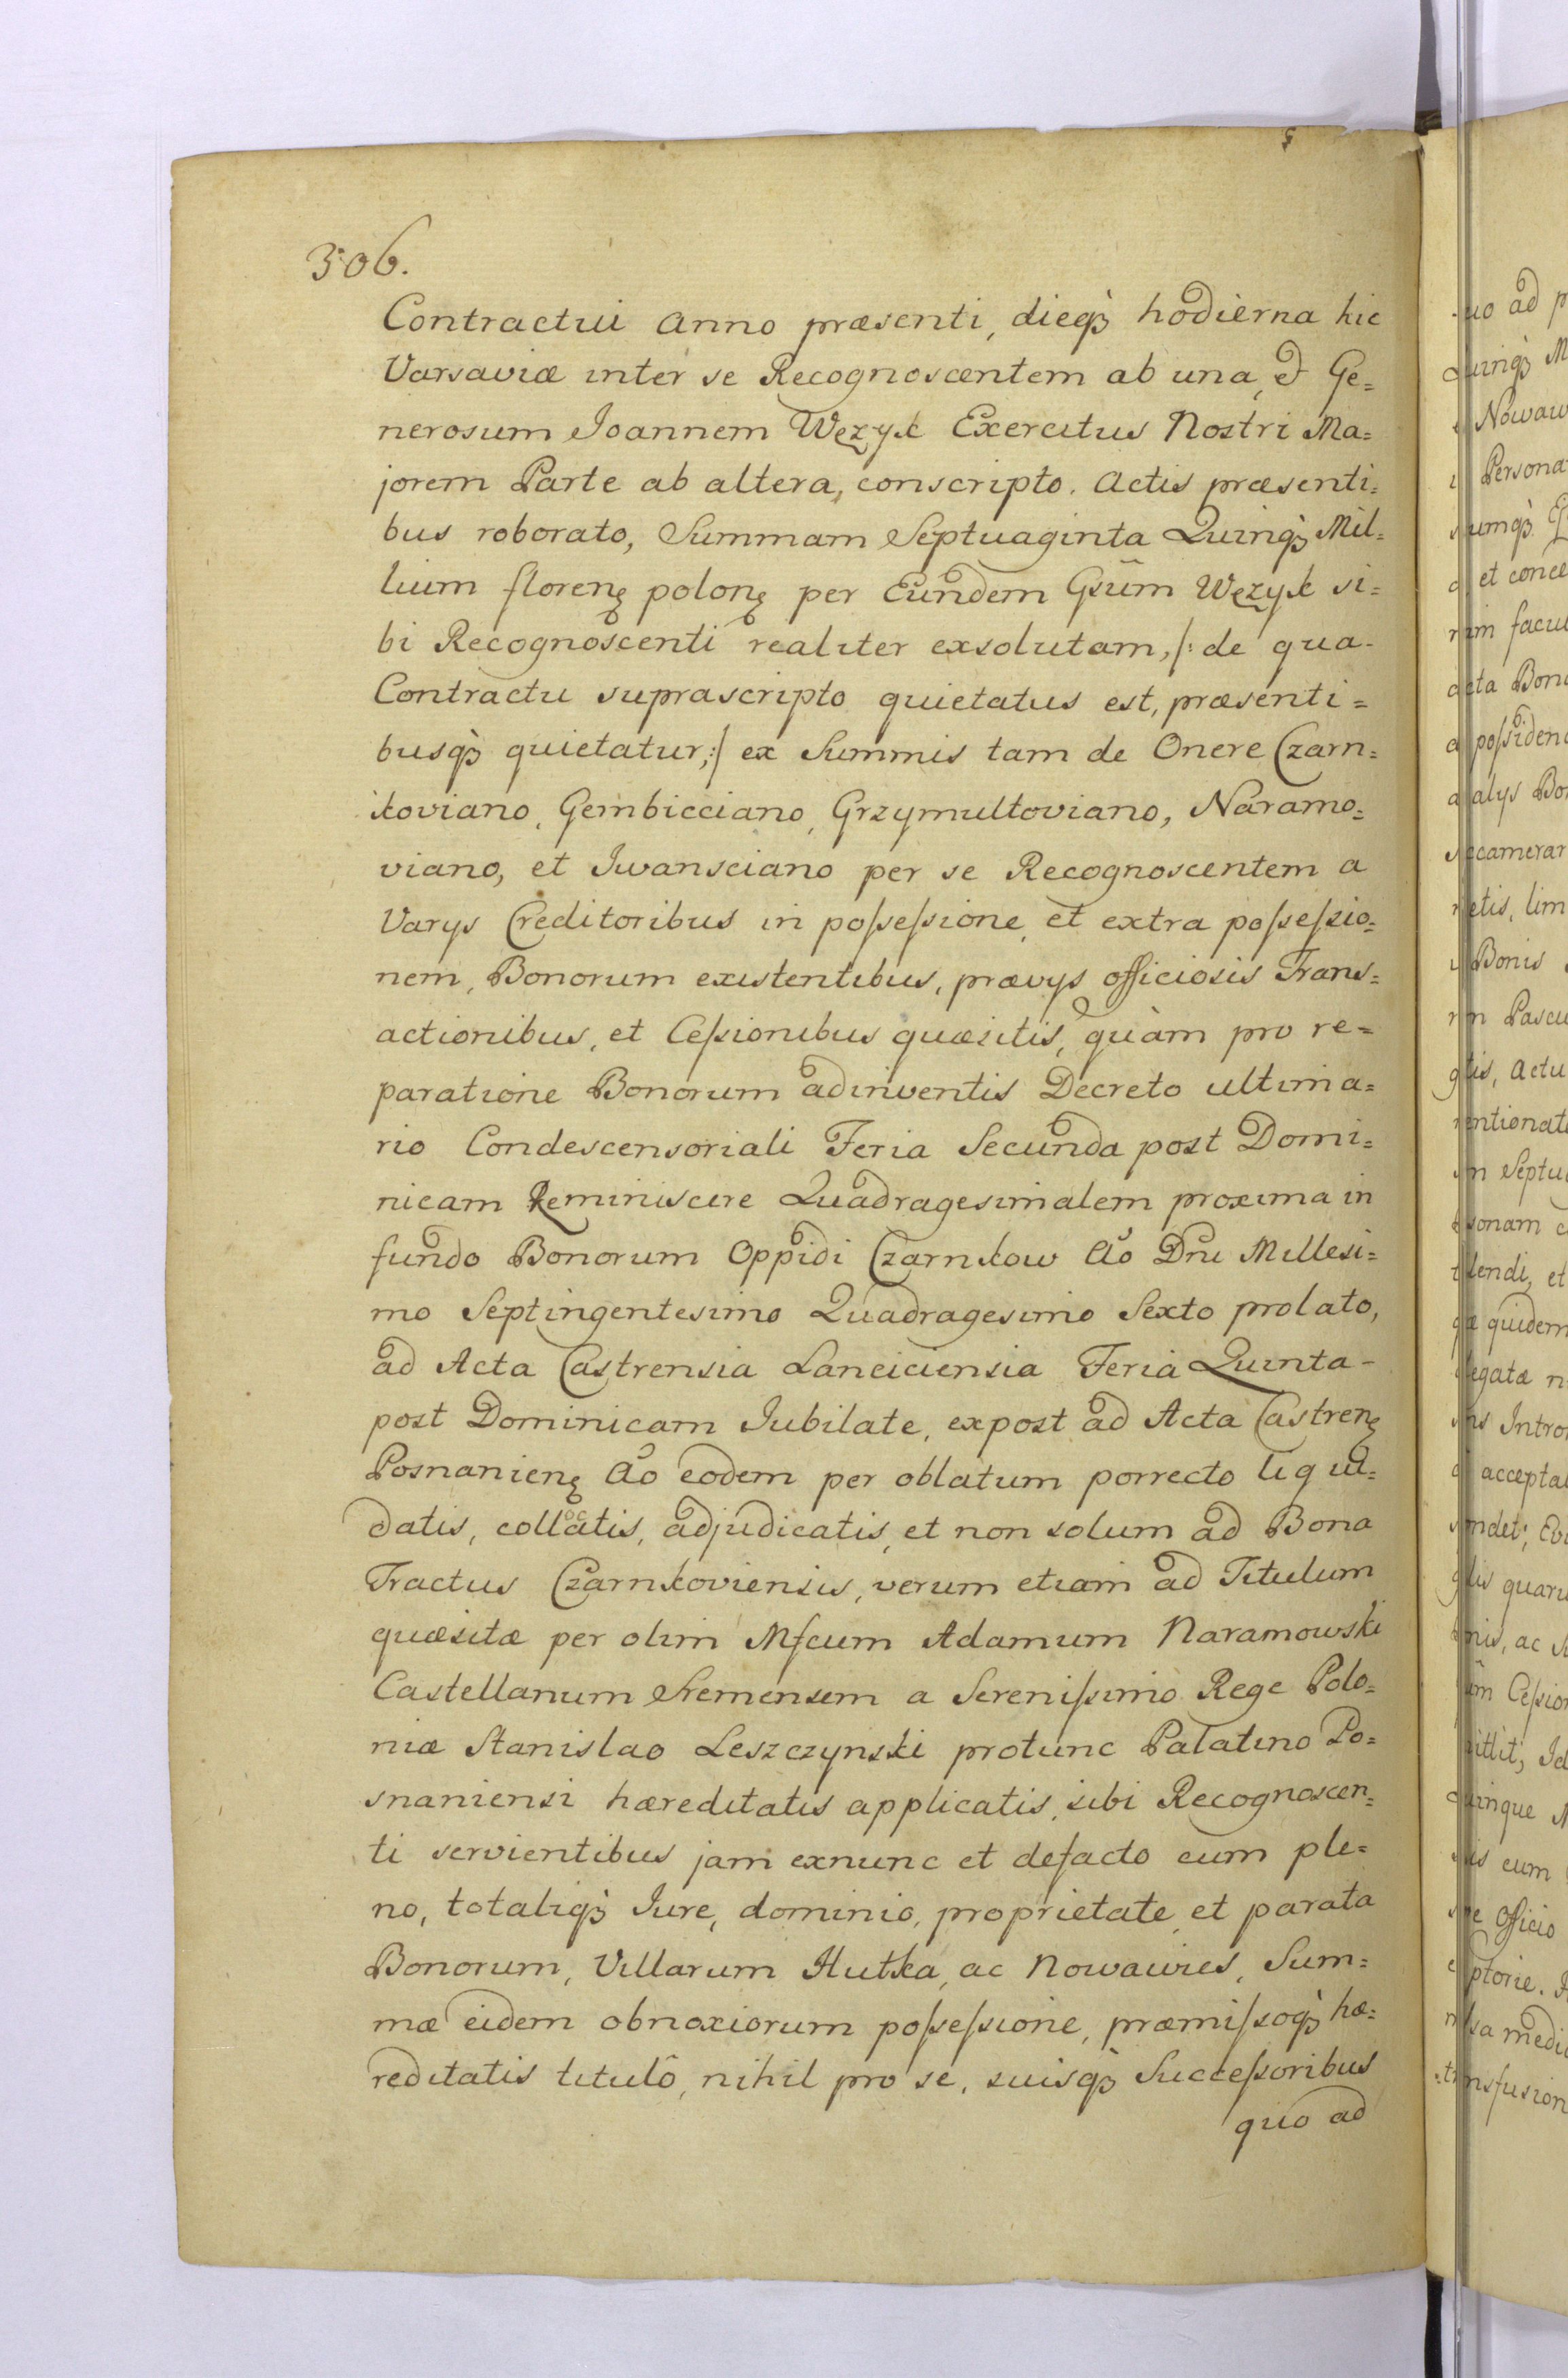 306.
Contractui anno præsenti, dieqꝫ hodierna hic
Varsaviæ inter se Recognoscentem ab una, & Ge=
nerosum Joannem Węzyk Exercitus Nostri Ma=
jorem Parte ab altera, conscripto. Actis præsenti=
bus roborato, Summam Septuaginta Quinqꝫ Mil=
lium florenꝫ polonꝫ per Eundem Gsūm Węzyk si=
bi Recognoscenti realiter exsolutam, /: de qua-
Contractu suprascripto quietatus est, præsenti=
busqꝫ quietatur, :/ ex Summis tam de Onere Czarn=
koviano, Gembicciano, Grzymultoviano, Naramo=
viano, et Iwansciano per se Recognoscentem a
Varys Creditoribus in poſseſsione, et extra poſseſsio=
nem, Bonorum existentibus, prævys officiosis Trans=
actionibus, et Ceſsionibus quæsitis, quàm pro re=
paratione Bonorum adinventis Decreto ultima=
rio Condescensoriali Feria Secunda post Domi=
nicam Reminiscere Quadragesimalem proxima in
fundo Bonorum Oppidi Czarnkow Aõ Dñi Millesi=
mo Septingentesimo Quadragesimo Sexto prolato,
ad Acta Castrensia Lanciciensia Feria Quinta-
post Dominicam Jubilate, expost ad Acta Castrenꝫ
Posnanienꝫ Aõ eodem per oblatum porrecto liqui=
datis, collocatis, adjudicatis, et non solum ad Bona
Tractus Czarnkoviensis, verum etiam ad Titulum
quæsitæ per olim Mfcum Adamum Naramowski
Castellanum Sremensem a Sereniſsimo Rege Polo=
niæ Stanislao Leszczynski protunc Palatino Po=
snaniensi hæreditatis applicatis, sibi Recognoscen=
ti servientibus jam exnunc et defacto cum ple=
no, totaliqꝫ Jure, dominio, proprietate, et parata
Bonorum, Villarum Hutka, ac Nowawies, Sum=
mæ eidem obnoxiorum poſseſsione, præmiſsoqꝫ hæ=
reditatis titulô, nihil pro se, suisqꝫ Succeſsoribus
quo ad